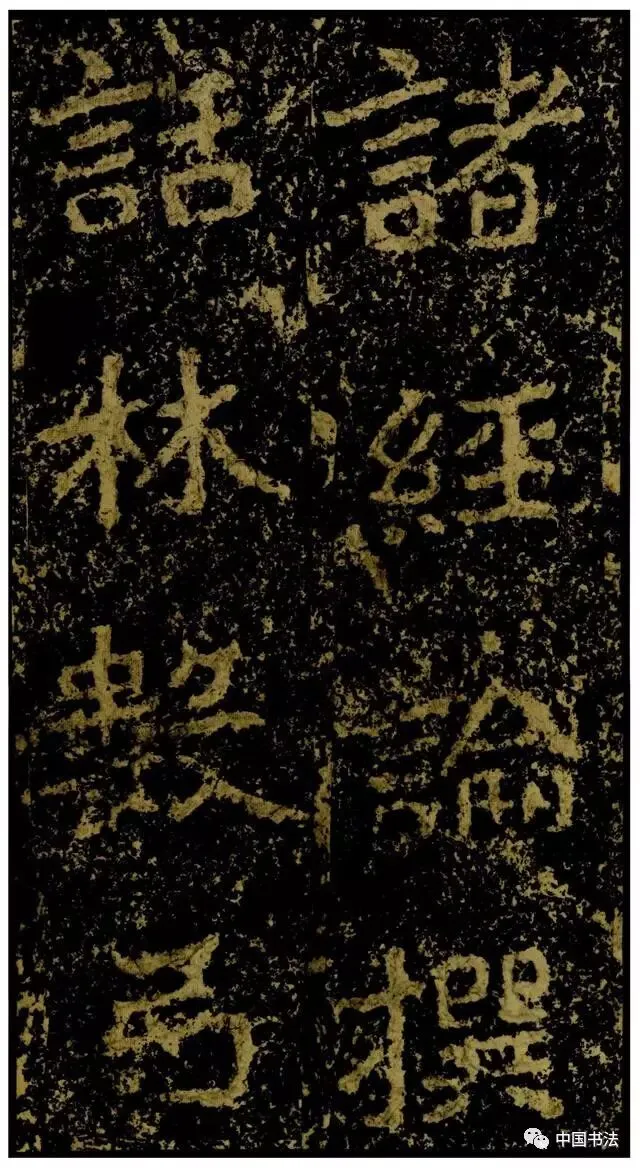 諸經論撰
話林數
中国书法